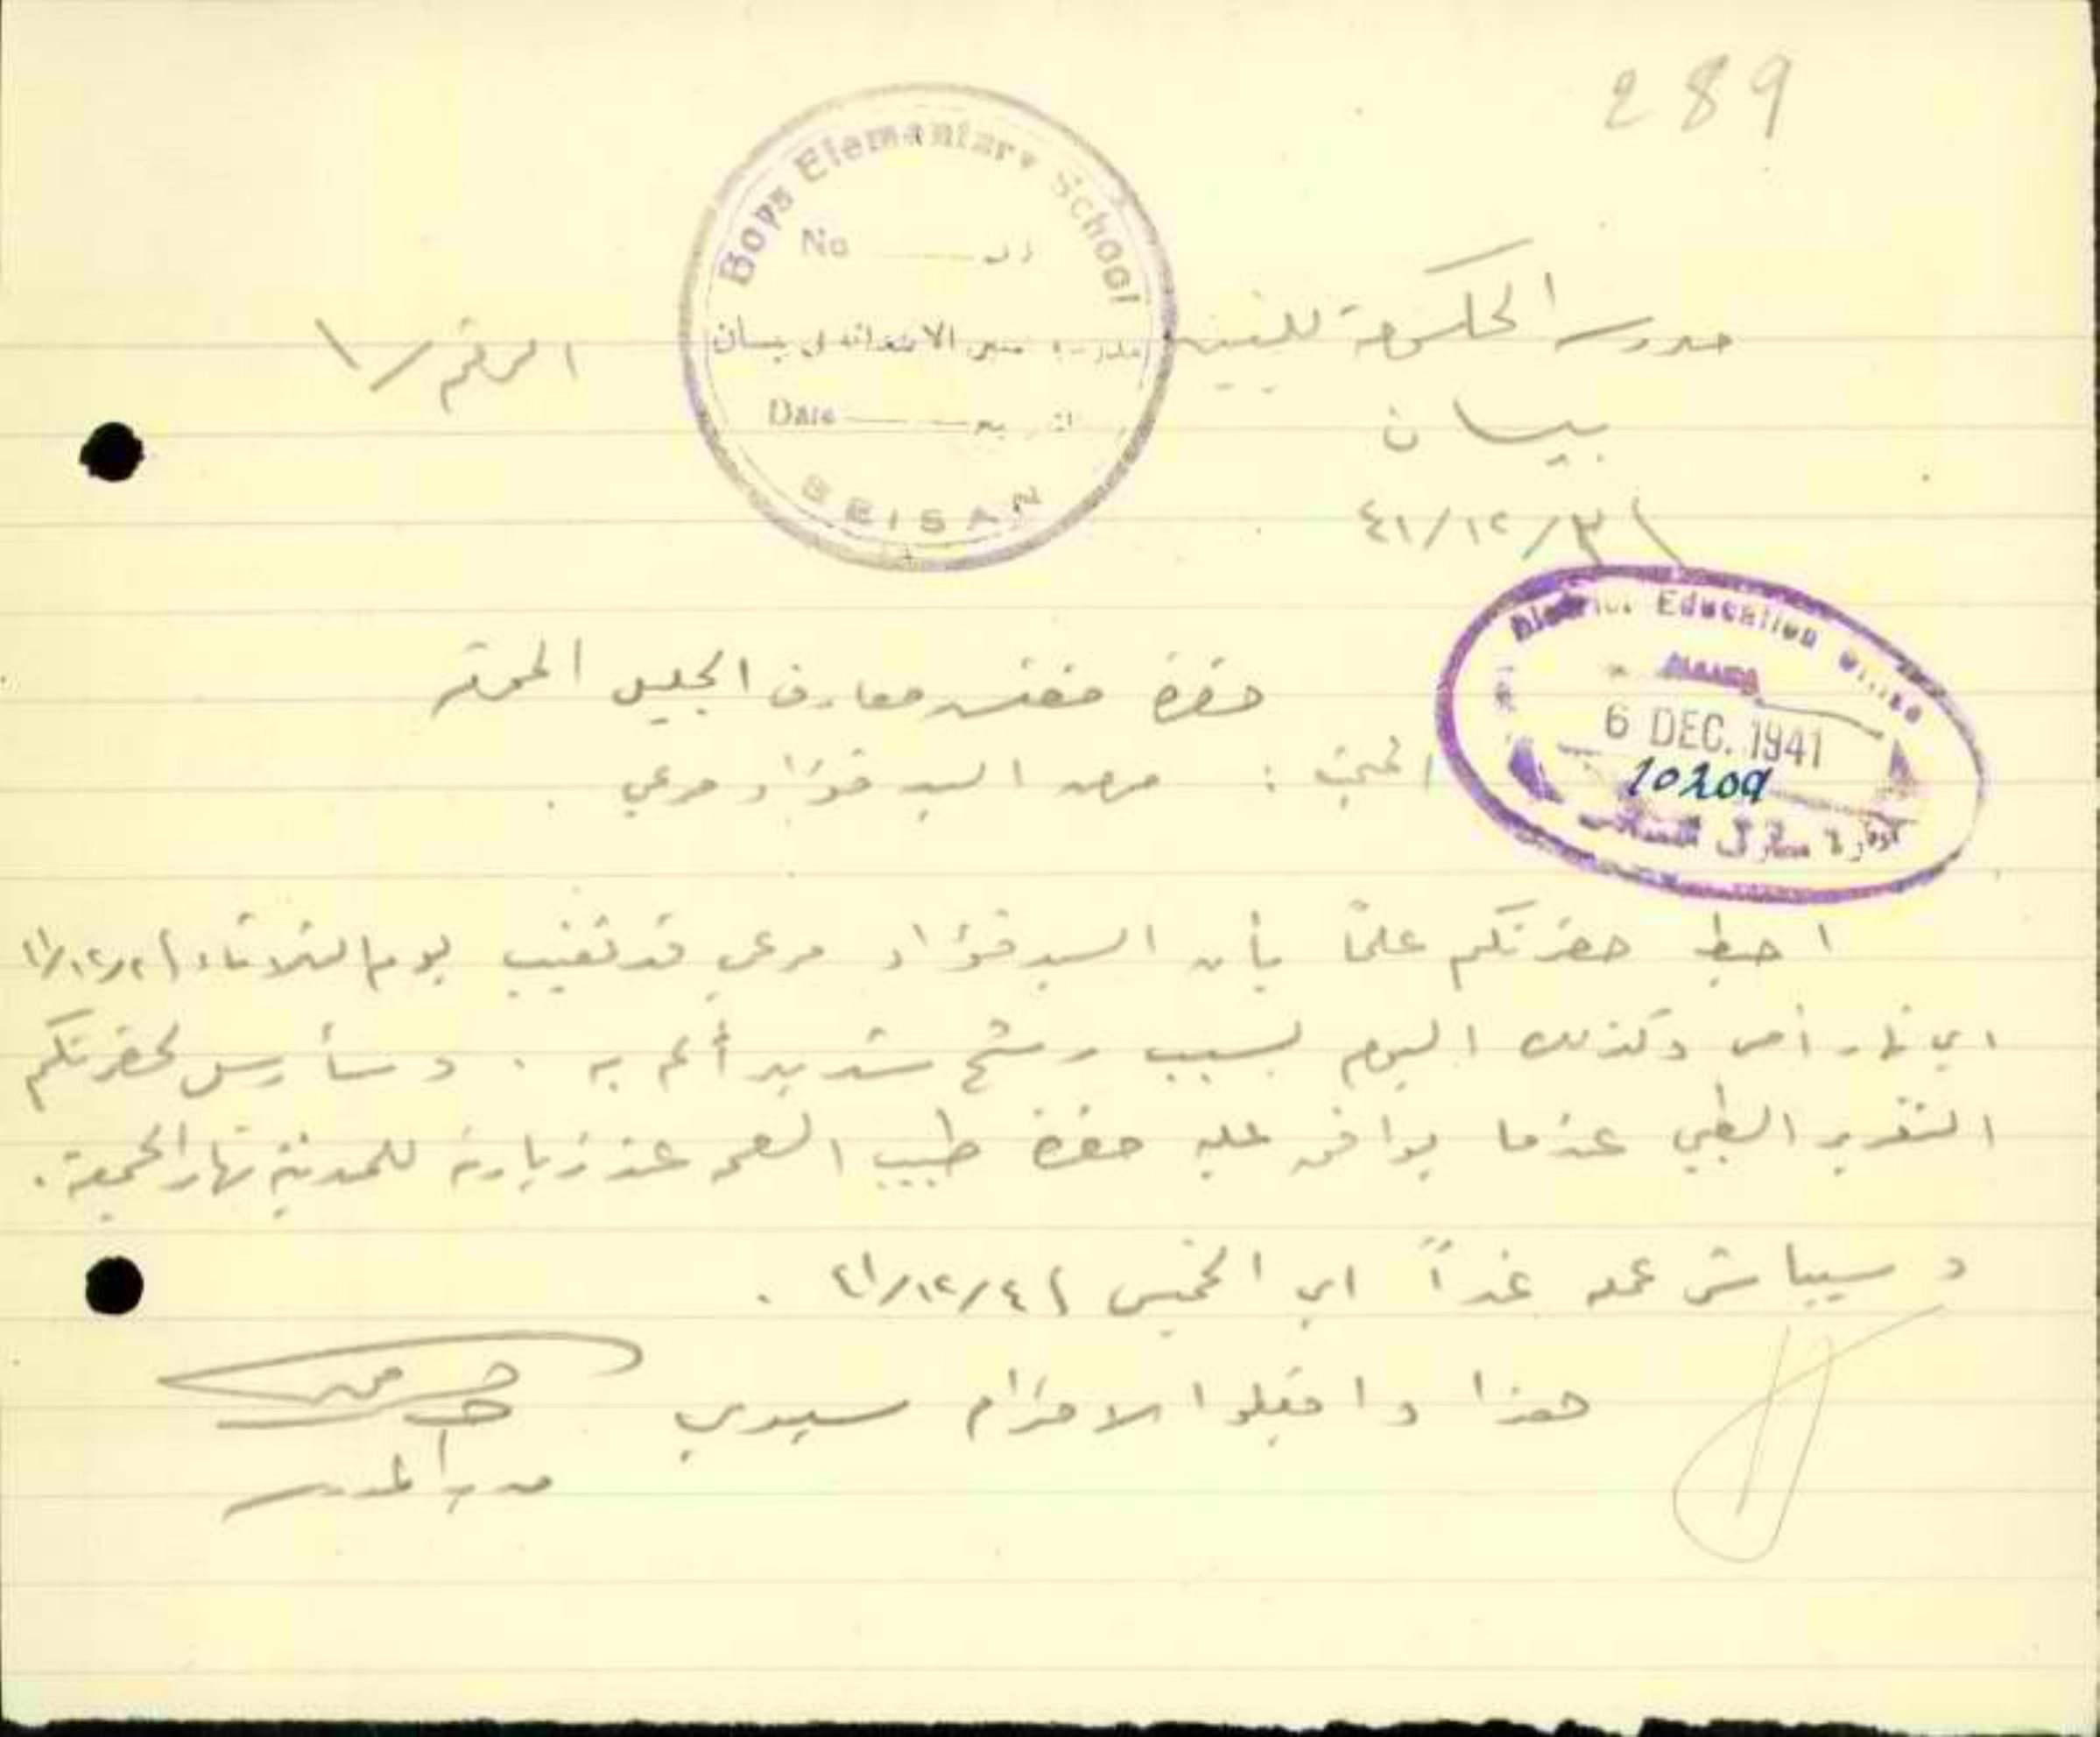 289
Boys Elementary School
No
مدرسة الحكومة للبنين
الرقم / ١
Date
BEISAN
بيسان
٤١/١٢/٣
District Education Office
6 DEC. 1941
10209
حضرة مفتش معارف الجليل المحترم
المبحث : مرض السيد فؤاد مرعي .
احيط حضرتكم علماً بأن السيد فؤاد مرعي قد تغيب يوم الثلاثاء
اي نهار أمس وكذلك اليوم بسبب رشح شديد ألم به . وسأرسل لحضرتكم
التقرير الطبي عندما يوافق عليه حضرة طبيب الصحة عند زيارته للمدينة نهار الجمعة .
وسيباشر عمله غداً اي الخميس ٤١/١٢/٤ .
هذا واقبلوا الاحترام سيدي
مدير المدرسة